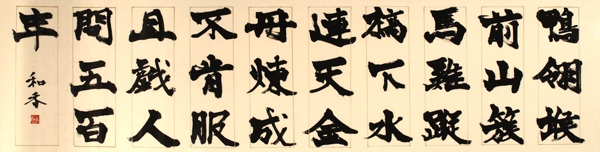 鴨翎堠
前山簇
馬雞蹤
橋下水
連天金
丹煉成
不肯服
且戲人
間五百
年
和